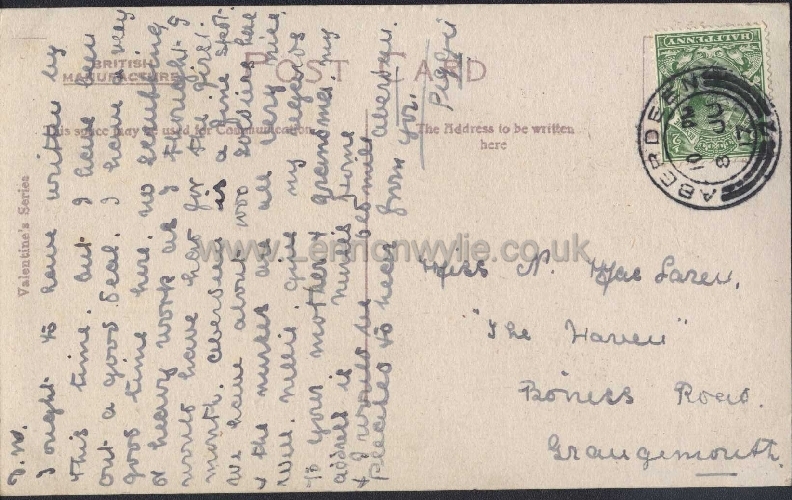 BRITISH
MANUFACTURE
POST CARD
This space may be used for Communication
The Address to be written
here
Valentine's Series
HALFPENNY
ABERDEEN
www.Lennonwylie.co.uk
Miss N. MacLaren,
"The Haven"
Boness Road.
Grangemouth.
I ought to have written by
this time. but I have been
out a good deal. I have a very
good time here. no scrubbing
or heavy work as I thought I
would have had for the first
month. Aberdeen is a fine spot.
We have about 1000 soldiers here
& the nurses are all very nice.
Well Nellie give my regards
to your mother & grandma. my
address is Nurses Home
& I would be
pleased to hear from you.
Aberdeen.
Peggy